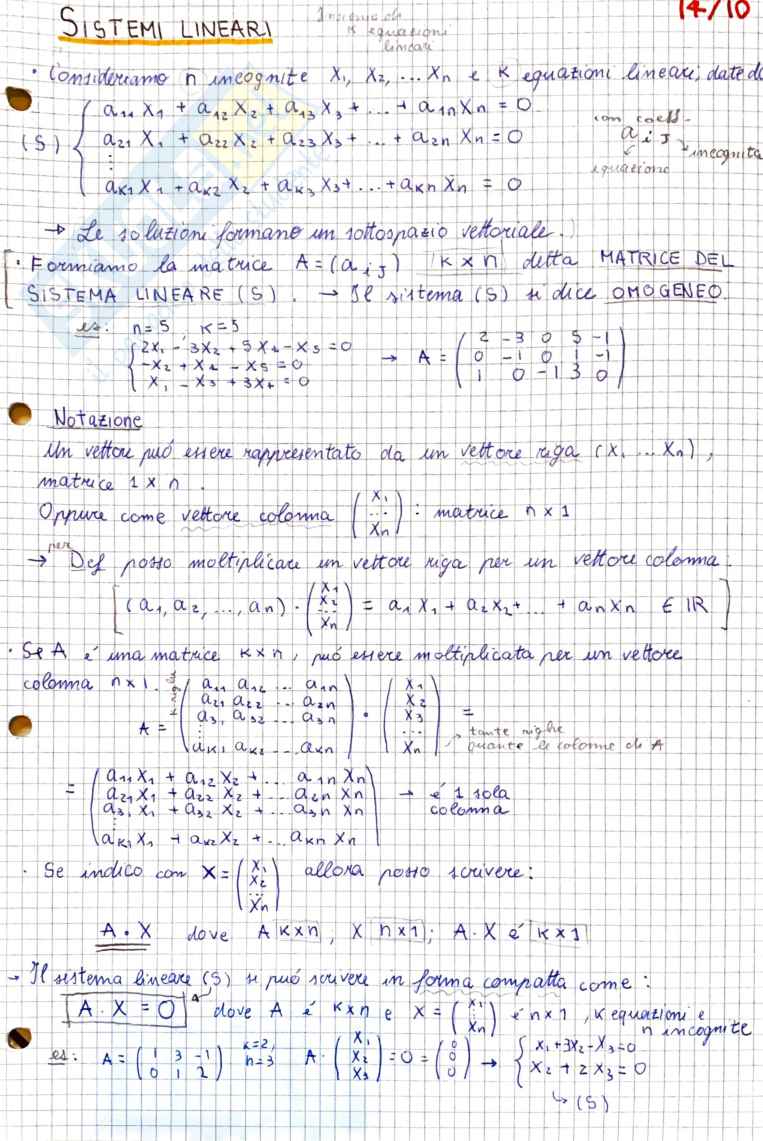 14/10
SISTEMI LINEARI
Insieme di
K equazioni
lineari
• Consideriamo n incognite X₁, X₂, ... Xn e K equazioni lineari, date da
(S) { a₁₁X₁ + a₁₂X₂ + a₁₃X₃ + ... + a₁nXn = 0
a₂₁X₁ + a₂₂X₂ + a₂₃X₃ + ... + a₂nXn = 0
⋮
aK₁X₁ + aK₂X₂ + aK₃X₃ + ... + aKnXn = 0
con coeff.
a i J
equazione
incognita
→ Le soluzioni formano un sottospazio vettoriale.
• Formiamo la matrice A = (a i J) K x n detta MATRICE DEL
SISTEMA LINEARE (S). → Il sistema (S) si dice OMOGENEO.
es: n=5, K=5
{ 2X₁ - 3X₂ + 5X₄ - X₅ = 0
-X₂ + X₄ - X₅ = 0
X₁ - X₃ + 3X₄ = 0
→ A = ( 2 -3 0 5 -1
0 -1 0 1 -1
1 0 -1 3 0 )
Notazione
Un vettore può essere rappresentato da un vettore riga (X₁ ... Xn),
matrice 1 x n.
Oppure come vettore colonna ( X₁ ... Xn ) : matrice n x 1
→ per Def posso moltiplicare un vettore riga per un vettore colonna.
[ (a₁, a₂, ..., an) · ( X₁ X₂ ... Xn ) = a₁X₁ + a₂X₂ + ... + anXn ∈ IR ]
• Se A é una matrice K x n, può essere moltiplicata per un vettore
colonna n x 1.
K righe
A = ( a₁₁ a₁₂ ... a₁n
a₂₁ a₂₂ ... a₂n
a₃₁ a₃₂ ... a₃n
⋮
aK₁ aK₂ ... aKn ) · ( X₁ X₂ X₃ ... Xn ) =
tante righe
quante le colonne di A
= ( a₁₁X₁ + a₁₂X₂ + ... a₁nXn
a₂₁X₁ + a₂₂X₂ + ... a₂nXn
a₃₁X₁ + a₃₂X₂ + ... a₃nXn
⋮
aK₁X₁ + aK₂X₂ + ... aKnXn )
→ é 1 sola
colonna
• Se indico con X = ( X₁ X₂ ... Xn ) allora posso scrivere:
A · X dove A K x n, X n x 1; A · X é K x 1
→ Il sistema lineare (S) si può scrivere in forma compatta come:
A · X = 0 dove A é K x n e X = ( X₁ ⋮ Xn ) é n x 1, K equazioni e
n incognite
es: A = ( 1 3 -1
0 1 2 )
K=2,
n=3
A · ( X₁ X₂ X₃ ) = 0 = ( 0 0 0 ) → { X₁ + 3X₂ - X₃ = 0
X₂ + 2X₃ = 0
↳ (S)